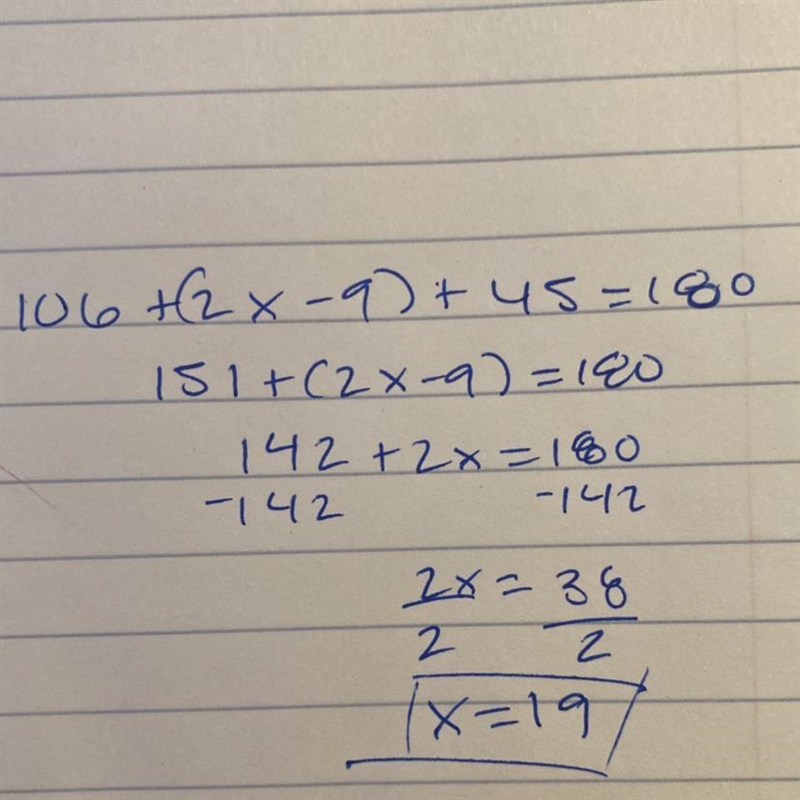 106 + (2x - 9) + 45 = 180
151 + (2x - 9) = 180
142 + 2x = 180
-142 -142
2x = 38
2 2
x = 19